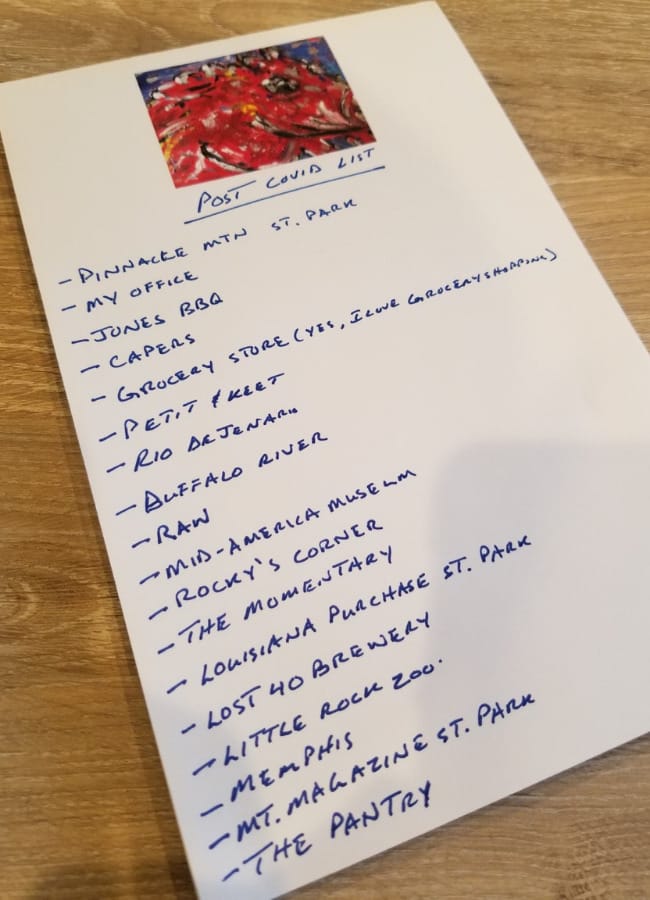 POST COVID LIST
- PINNACKE MTN ST. PARK
- MY OFFICE
- JONES BBQ
- CAPERS
- GROCERY STORE (YES, I LOVE GROCERY SHOPPING)
- PETIT & KEET
- RIO DEJENARO
- BUFFALO RIVER
- RAW
- MID-AMERICA MUSEUM
- ROCKY'S CORNER
- THE MOMENTARY
- LOUISIANA PURCHASE ST. PARK
- LOST 40 BREWERY
- LITTLE ROCK ZOO.
- MEMPHIS
- MT. MAGAZINE ST. PARK
- THE PANTRY